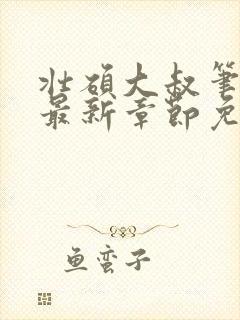 壮硕大叔笔
最新章节免
鱼蛮子